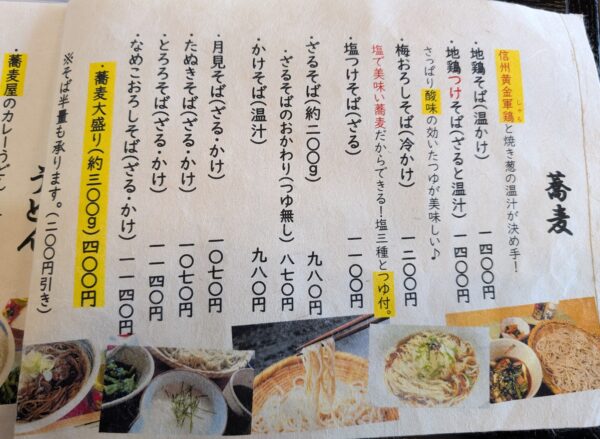 蕎麦
信州黄金軍鶏と焼き葱の温汁が決め手!
しゃも
・地鶏そば(温かけ) 一四〇〇円
・地鶏つけそば(ざると温汁) 一四〇〇円
さっぱり酸味の効いたつゆが美味しい♪
・梅おろしそば(冷かけ) 一二〇〇円
塩で美味い蕎麦だからできる!塩三種とつゆ付。
・塩つけそば(ざる) 一一〇〇円
・ざるそば(約二〇〇g) 九八〇円
ざるそばのおかわり(つゆ無し) 八七〇円
・かけそば(温汁) 九八〇円
・月見そば(ざる・かけ) 一〇七〇円
・たぬきそば(ざる・かけ) 一〇七〇円
・とろろそば(ざる・かけ) 一一四〇円
・なめこおろしそば(ざる・かけ) 一一四〇円
・蕎麦大盛り(約三〇〇g) 四〇〇円
※そば半量も承ります。(二〇〇円引き)
うどん
・蕎麦屋のカレーうどん